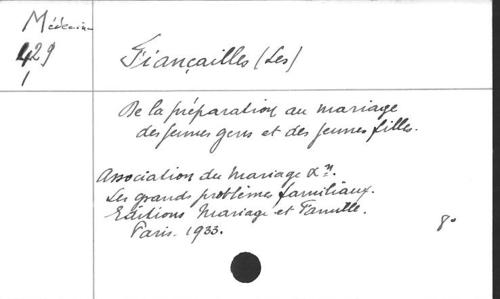 Médecine
429
1
Fiançailles (Les)
De la préparation au mariage
des jeunes gens et des jeunes filles.
Association du Mariage Xⁿ.
Les grands problèmes familiaux.
Editions Mariage et Famille.
Paris. 1933.
8°